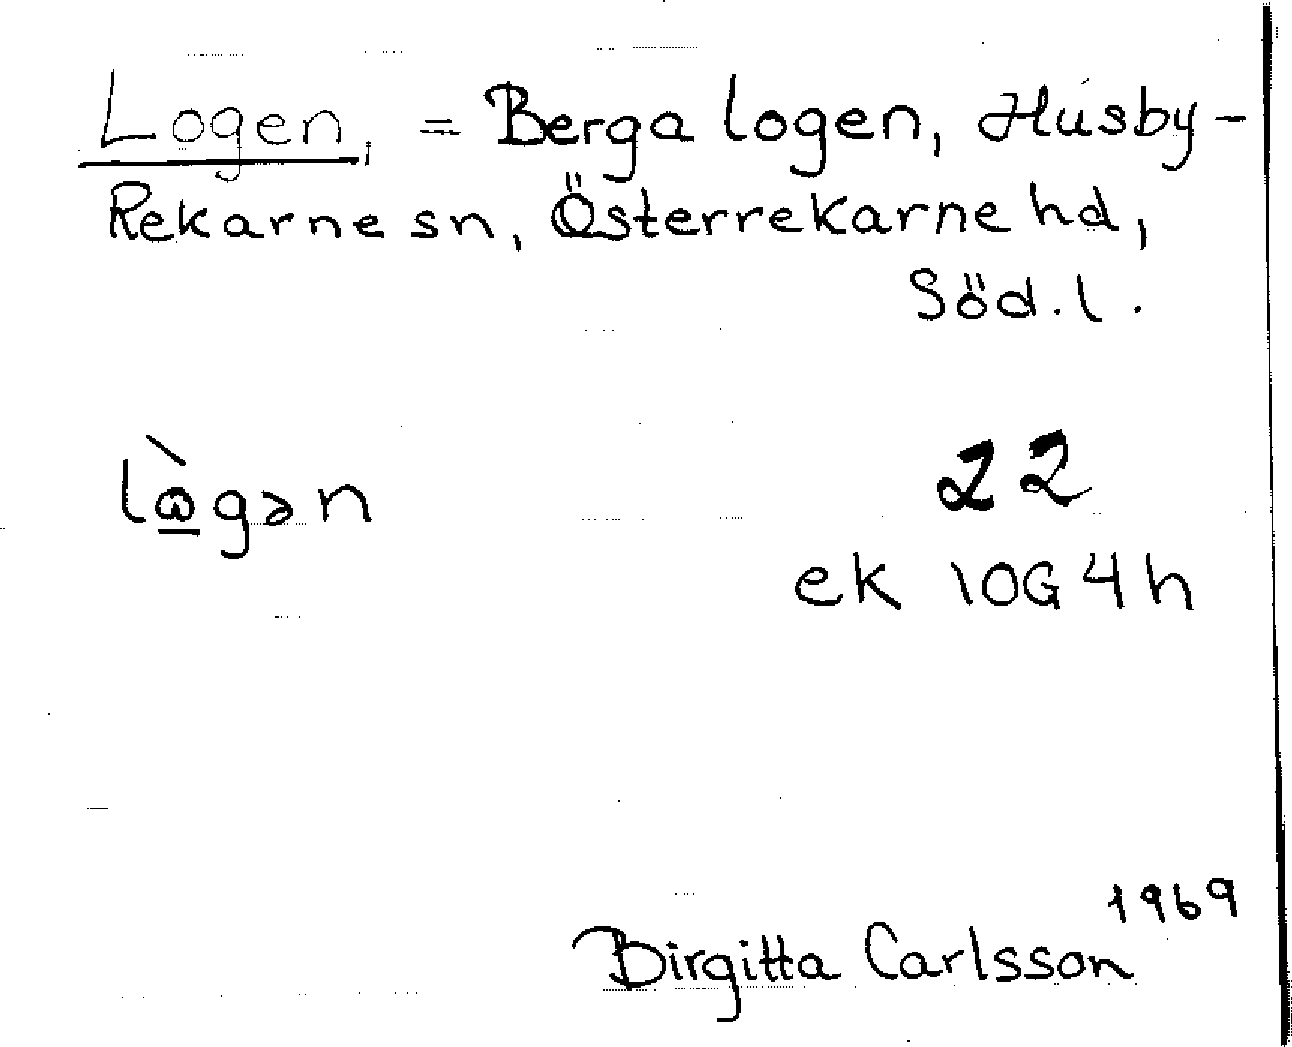 Logen, = Berga logen, Husby-
Rekarne sn, Österrekarne hd,
Söd.l.
lò̲gən 22
ek 10G 4h
1969
Birgitta Carlsson